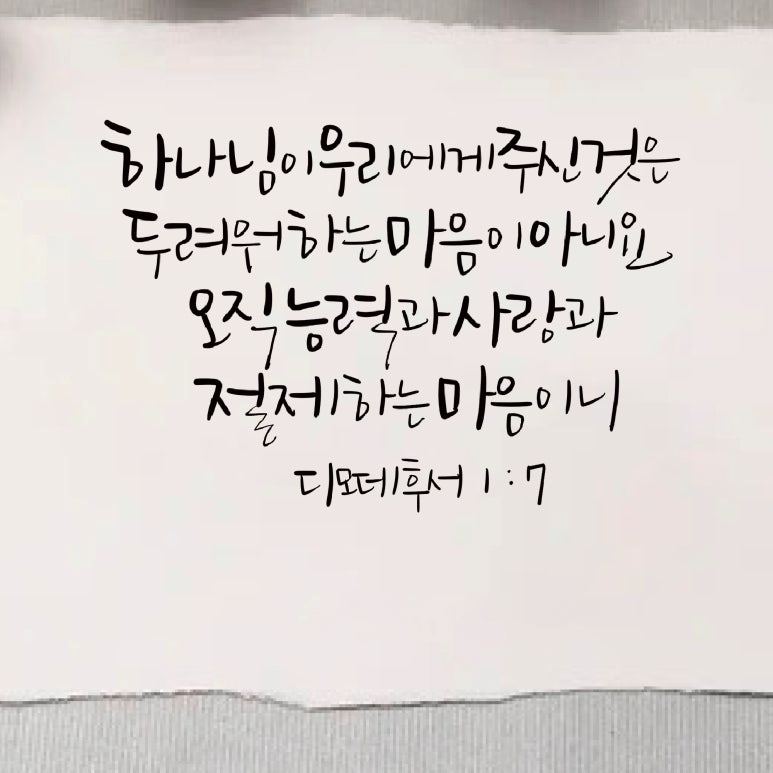 하나님이 우리에게 주신 것은
두려워하는 마음이 아니요
오직 능력과 사랑과
절제하는 마음이니
디모데후서 1:7